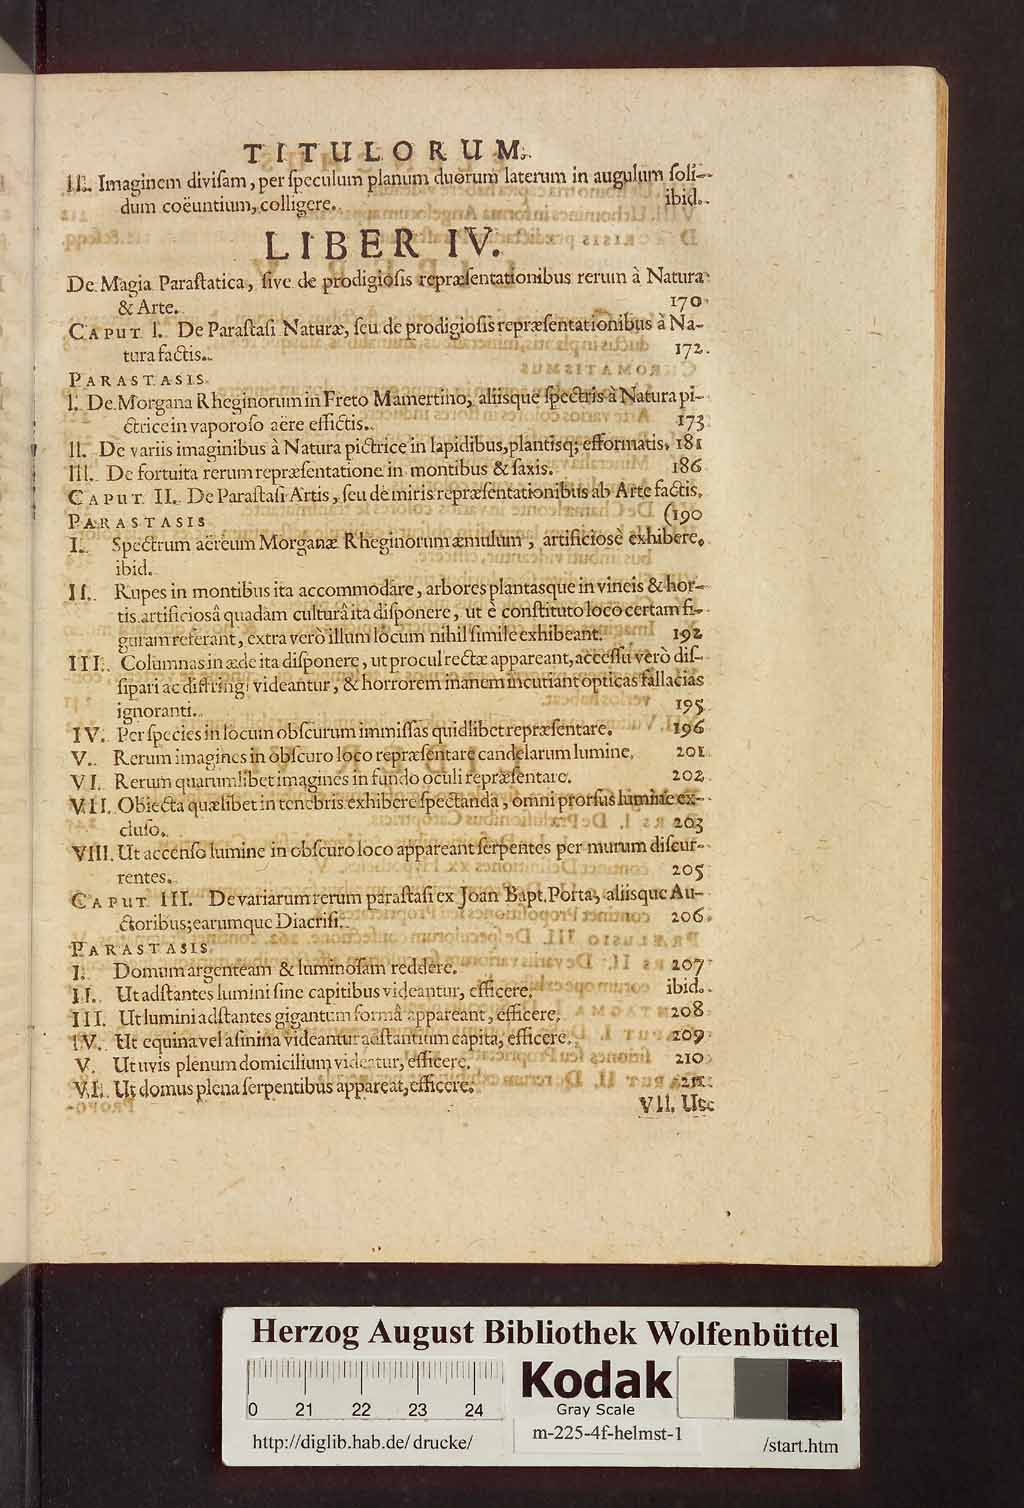 TITULORUM.
II. Imaginem divisam, per speculum planum duorum laterum in augulum soli-
dum coëuntium, colligere. ibid.
LIBER IV.
De Magia Parastatica, sive de prodigiosis repræsentationibus rerum à Natura
& Arte. 170
CAPUT I. De Parastasi Naturæ, seu de prodigiosis repræsentationibus à Na-
tura factis. 172.
PARASTASIS
I. De Morgana Rheginorum in Freto Mamertino, aliisque spectris à Natura pi-
ctrice in vaporoso aëre effictis. 173
II. De variis imaginibus à Natura pictrice in lapidibus, plantisq; efformatis. 181
III. De fortuita rerum repræsentatione in montibus & saxis. 186
CAPUT II. De Parastasi Artis, seu de miris repræsentationibus ab Arte factis.
PARASTASIS (190
I. Spectrum aëreum Morganæ Rheginorum æmulum, artificiosè exhibere.
ibid.
II. Rupes in montibus ita accommodare, arbores plantasque in vineis & hor-
tis artificiosâ quadam culturâ ita disponere, ut è constituto loco certam fi-
guram referant, extra verò illum locum nihil simile exhibeant. 192
III. Columnas in æde ita disponere, ut procul rectæ appareant, accessu verò dis-
sipari ac distringi videantur, & horrorem inanem incutiant opticas fallacias
ignoranti. 195
IV. Per species in locum obscurum immissas quidlibet repræsentare. 196
V. Rerum imagines in obscuro loco repræsentare candelarum lumine. 201
VI. Rerum quarumlibet imagines in fundo oculi repræsentare. 202
VII. Obiecta quælibet in tenebris exhibere spectanda, omni prorsus lumine ex-
cluso. 203
VIII. Ut accenso lumine in obscuro loco appareant serpentes per murum discur-
rentes. 205
CAPUT III. De variarum rerum parastasi ex Joan Bapt. Porta, aliisque Au-
ctoribus; earumque Diacrisi. 206
PARASTASIS
I. Domum argenteam & luminosam reddere. 207
II. Ut adstantes lumini sine capitibus videantur, efficere. ibid.
III. Ut lumini adstantes gigantum formâ appareant, efficere. 208
IV. Ut equina vel asinina videantur adstantium capita, efficere. 209
V. Ut uvis plenum domicilium videatur, efficere. 210
VI. Ut domus plena serpentibus appareat, efficere. 211
VII. Ut
Herzog August Bibliothek Wolfenbüttel
0 21 22 23 24
Kodak
Gray Scale
http://diglib.hab.de/drucke/ m-225-4f-helmst-1 /start.htm